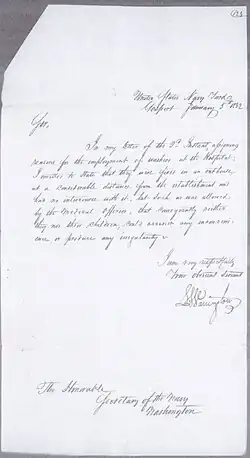 United States Navy Yard
Gosport January 5th 1832
Sir,
In my letter of the 2d Instant assigning
reasons for the employment of washers at the Hospital;
I omitted to State that they were quartered in an outhouse
at a considerable distance from the establishment and
had no intercourse with it, but such as was allowed
by the Medical Officers, that consequently neither
they nor their children, could occasion any inconveni-
ence or produce any irregularity.
I am very respectfully
Your obedient servant
The Honorable
Secretary of the Navy
Washington